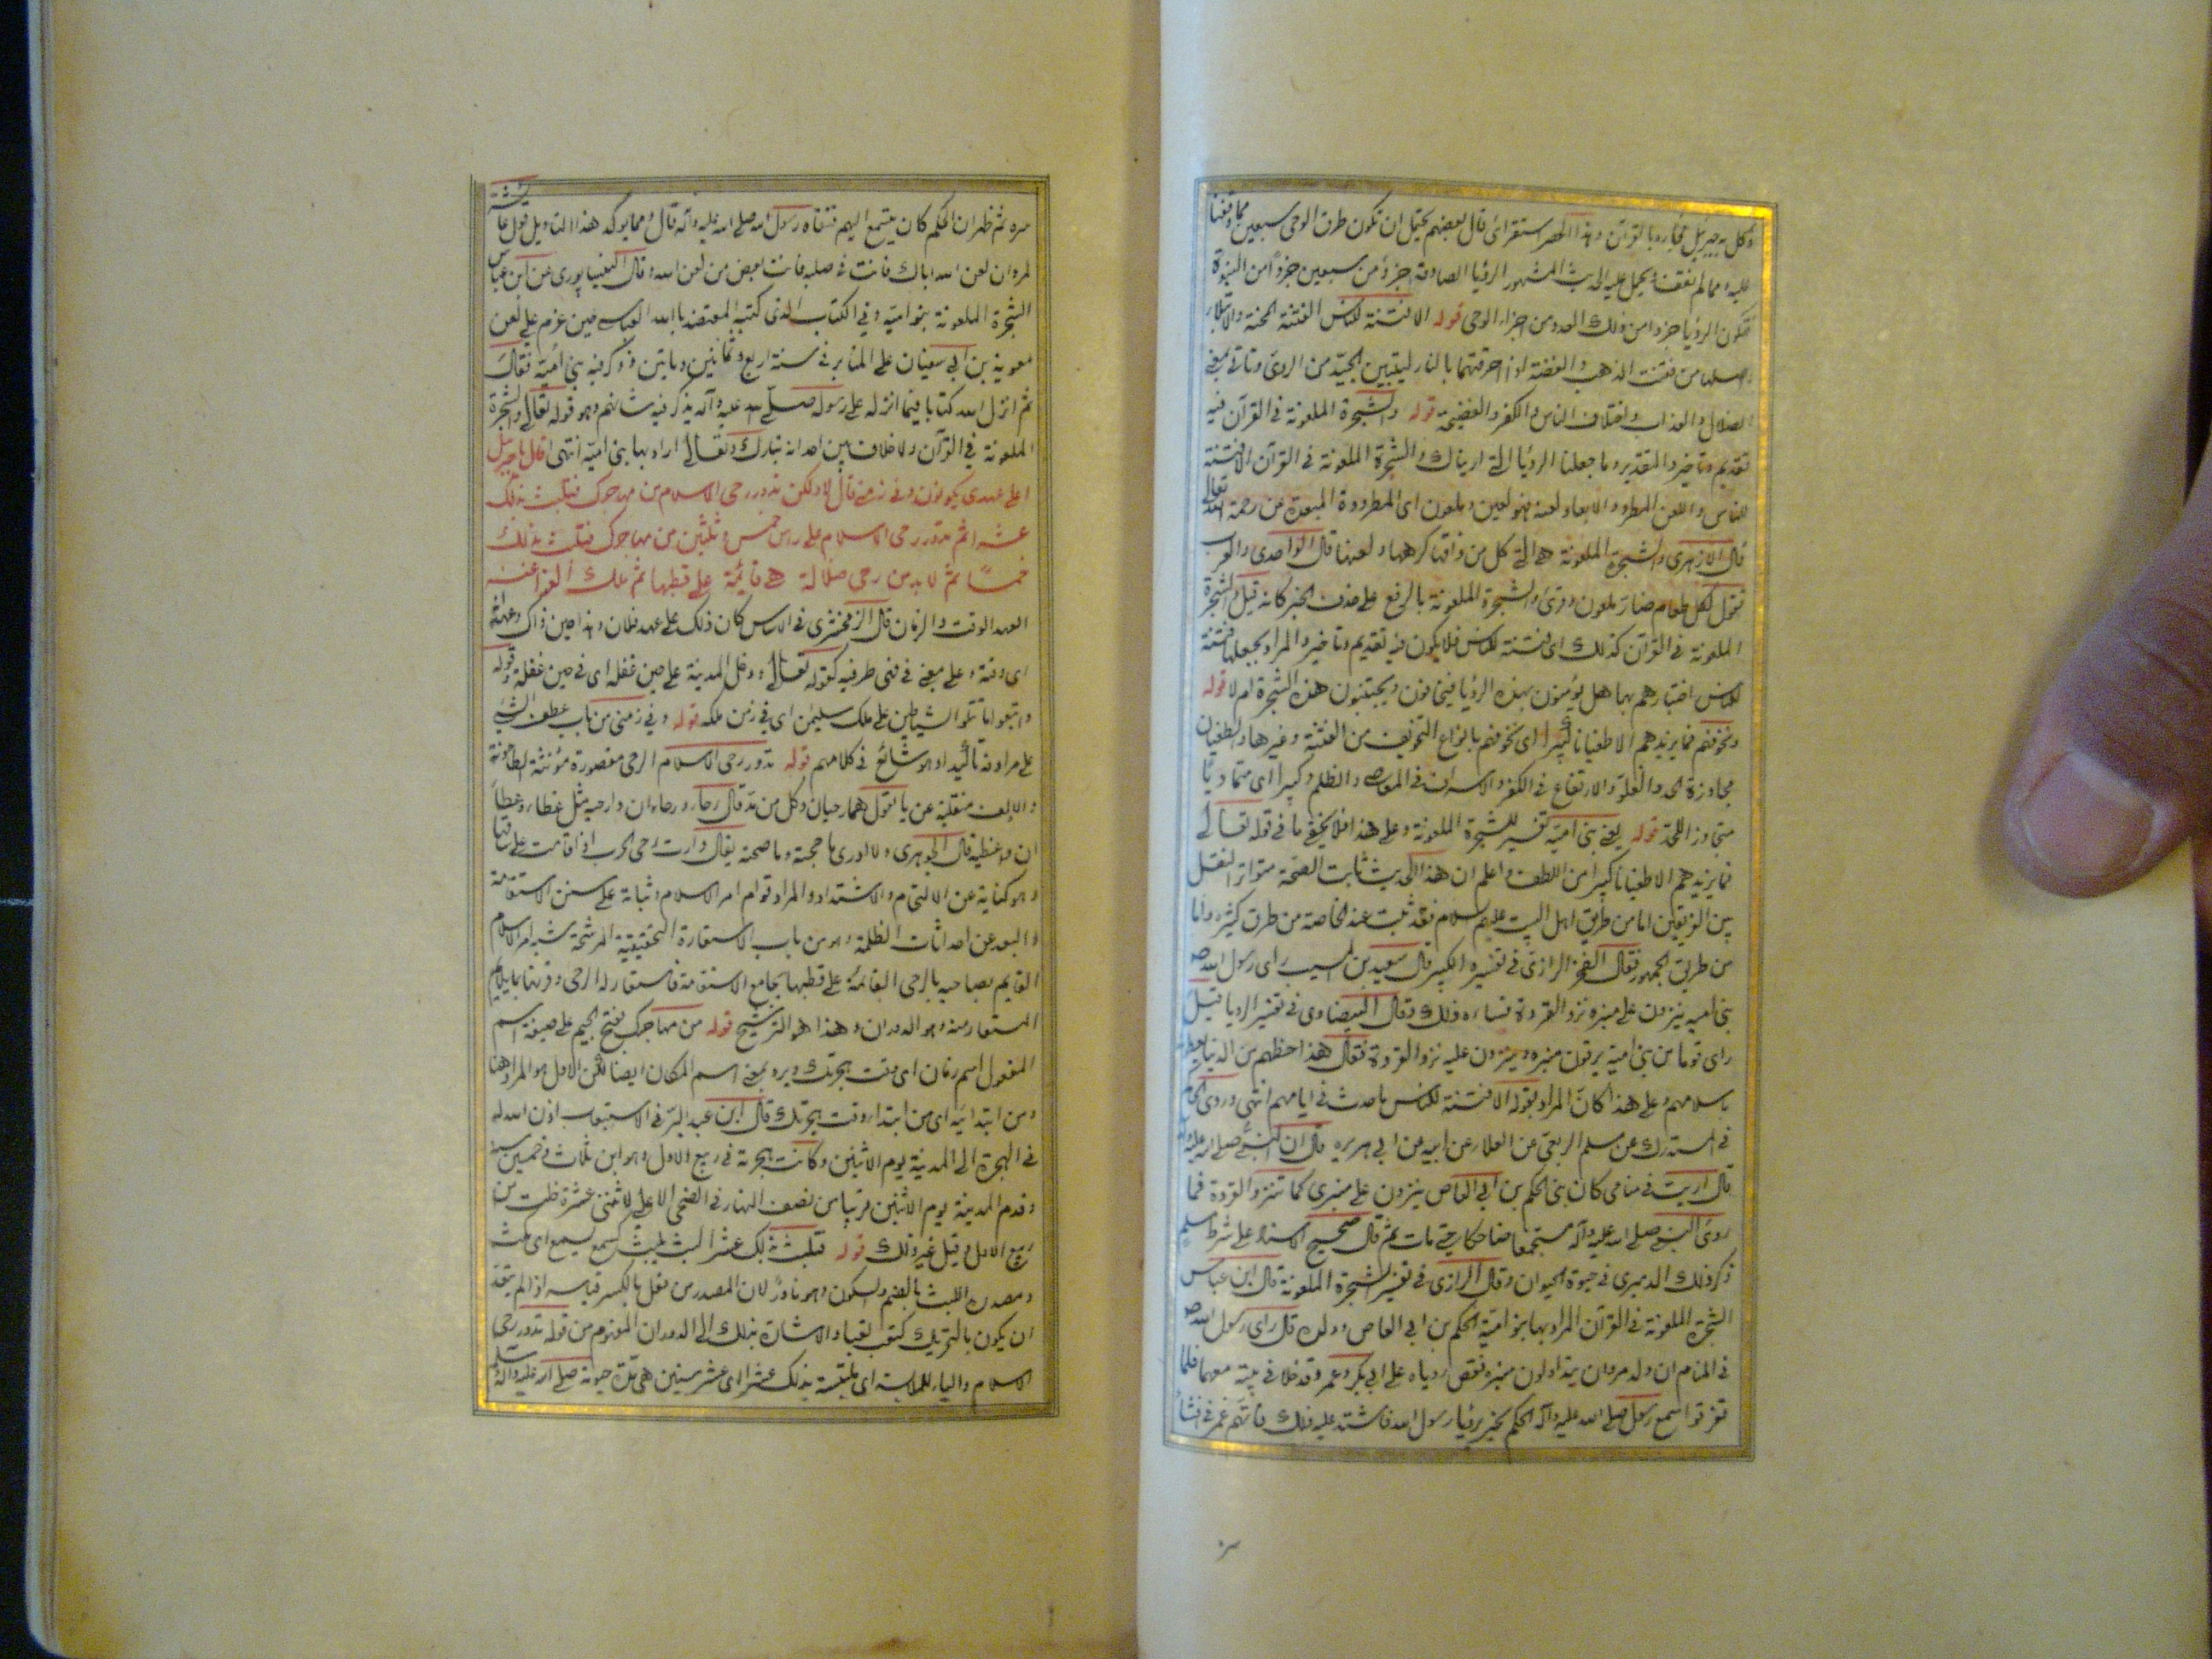 وكل به جبريل فجاءه بالقرآن وهذا الحصر استقرائى قال بعضهم يحتمل ان تكون طرق الوحى سبعين مما وقفنا
عليه ومما لم نقف ويحمل عليه الحديث المشهور الرؤيا الصادقة جزؤ من سبعين جزؤ امن النبوة
فتكون الرؤيا جزوا من ذلك العدد من اجزاء الوحى قوله الا فتنة للناس الفتنة المحنة والابتلاء
اصلها من فتنت الذهب والفضة اذا احرقتهما بالنار ليتبين الجيد من الردى وتاتى بمعنى
الضلال والعذاب واختلاف الناس والكفر والفضيحة قوله والشجرة الملعونة فى القرآن فيه
تقديم وتاخير والتقدير وما جعلنا الرؤيا التى اريناك والشجرة الملعونة فى القرآن الا فتنة
للناس واللعن الطرد والابعاد لعنه فهو لعين وملعون اى المطرودة المبعدة من رحمة الله تعالى
قال الازهرى والشجرة الملعونة هى التى كل من ذاقها كرهها ولعنها قال الواحدى والعرب
تقول لكل طعام ضار ملعون وقرئ والشجرة الملعونة بالرفع على حذف الخبر كانه قيل والشجرة
الملعونة فى القرآن كذلك اى فتنة للناس فلا يكون فيه تقديم وتاخير والمراد بجعلها فتنة
للناس اختبارهم بها هل يؤمنون بهذه الرؤيا فيخافون ويجتنبون هذه الشجرة ام لا قوله
ونخوفهم فما يزيدهم الا طغيانا كبيرا اى نخوفهم بانواع التخويف من الفتنة وغيرها والطغيان
مجاوزة الحد والغلو والارتفاع فى الكفر والاسراف فى المعاصى والظلم وكبيرا اى متماديا
متجاوز اللحد قوله يعنى بنى امية تفسير للشجرة الملعونة وعلى هذا فلا يخفى ما فى قوله تعالى
فما يزيدهم الا طغيانا كبيرا من اللطف واعلم ان هذا الحديث ثابت الصحة متواتر النقل
بين الفريقين اما من طريق اهل البيت عليهم السلام فقد ثبت عند الخاصة من طرق كثيرة واما
من طريق الجمهور فقال الفخر الرازى فى تفسيره الكبير قال سعيد بن المسيب راى رسول الله ص
بنى اميه ينزون على منبره نزو القردة فساءه ذلك وقال البيضاوى فى تفسير الرويا قيل
راى قوما من بنى امية يرقون منبره وينزون عليه نزو القردة فقال هذا حظهم من الدنيا يعطونه
باسلامهم وعلى هذا كان المراد بقوله الا فتنة للناس ما حدث فى ايامهم انتهى وروى الحاكم
فى المستدرك عن مسلم الربعى عن العلاء عن ابيه عن ابى هريره قال ان النبى صلى الله عليه وآله
قال اريت فى منامى كان بنى الحكم بن ابى العاص ينزون على منبرى كما تنزو القردة فما
روى النبى صلى الله عليه وآله مستجمعا ضاحكا حتى مات ثم قال صحيح الاسناد على شرط مسلم
ذكر ذلك الدميرى فى حيوة الحيوان وقال الرازى فى تفسير الشجرة الملعونة قال ابن عباس
الشجرة الملعونة فى القرآن المراد بها بنو امية الحكم بن ابى العاص وولده قال راى رسول الله ص
فى المنام ان ولد مروان يتداولون منبره فقص رؤياه على ابى بكر وعمر وقد خلا فى بيته معهما فلما
تفرقوا سمع رسول صلى الله عليه وآله الحكم يخبر برؤيا رسول الله فاشتد عليه ذلك فاتهم عمر فى افشاء
سره ثم ظهر ان الحكم كان يستمع اليهم فنفاه رسول الله صلى الله عليه وآله قال ومما يؤكد هذا التاويل قول عايشة
لمروان لعن الله اباك فانت فى صلبه فانت بعض من لعن الله وقال النيسابورى عن ابن عباس
الشجرة الملعونة بنو امية وفى الكتاب الذى كتبه المعتضد بالله العباسى حين عزم على لعن
معوية بن ابى سفيان على المنابر فى سنة اربع وثمانين ومايتين وذكر فيه بنى امية فقال
ثم انزل الله كتابا فيما انزله على رسوله صلى الله عليه وآله يذكر فيه شانهم وهو قوله تعالى والشجرة
الملعونة فى القرآن ولا خلاف بين احد انه تبارك وتعالى اراد بها بنى امية انتهى قال يا جبريل
اعلى عهدى يكونون وفى زمنى قال لا ولكن تدور رحى الاسلام من مهاجرك فتلبث بذلك
عشرا ثم تدور رحى الاسلام على راس خمس وثلثين من مهاجرك فتلبث بذلك
خمسا ثم لا بد من رحى ضلالة هى قائمة على قطبها ثم ملك الفراعنه
العهد الوقت والزمان قال الزمخشرى فى الاساس كان ذلك على عهد فلان وهذا حين ذاك وعهدانه
اى وقته وعلى بمعنى فى فهى ظرفيه كقوله تعالى ودخل المدينة على حين غفله اى فى حين غفلة وقوله
واتبعوا ما تتلو الشياطين على ملك سليمن اى فى زمن ملكه قوله وفى زمنى من باب عطف الشئ
على مرادفه تاكيدا وهو شائع فى كلامهم قوله تدور رحى الاسلام الرحى مقصورة مؤنثة الطاحونة
والالف منقلبة عن يا تقول هما رحيان وكل من مد قال رحاء ورحاءان وارحيه مثل غطاء وغطاءان
ان واغطيه قال الجوهرى ولا ادرى ما حجته وما صحته يقال دارت رحى الحرب اذا قامت على ساقها
وهو كناية عن الالتيام والاشتداد والمراد قوام امر الاسلام وثباته على سنن الاستقامة
والبعد عن احداثات الظلمة وهو من باب الاستعارة التحقيقية المرشحة شبه امر الاسلام
القايم بصاحبه بالرحى القائمة على قطبها بجامع الاستقامة فاستعار له الرحى وقرنها بما يلايم
المستعار منه وهو الدوران وهذا هو الترشيح قوله من مهاجرك بفتح الجيم على صيغة اسم
المفعول اسم زمان اى وقت هجرتك ويرد بمعنى اسم المكان ايضا لكن الاول هو المراد هنا
ومن ابتدائيه اى من ابتداء وقت هجرتك قال ابن عبد البر فى الاستيعاب اذن الله له
فى الهجرة الى المدينة يوم الاثنين وكانت هجرته فى ربيع الاول وهو ابن ثلاث وخمسين سنة
وقدم المدينة يوم الاثنين قريبا من نصف النهار فى الضحى الاعلى لاثنتى عشرة خلت من
ربيع الاول وقيل غير ذلك قوله فتلبث بذلك عشرا لبث يلبث كسمع يسمع اى مكث
ومصدره اللبث بالضم والسكون وهو نادر لان المصدر من فعل بالكسر قياسه اذا لم يتعد
ان يكون بالتحريك كتعب تعبا والاشارة بذلك الى الدوران المفهوم من قوله تدور رحى
الاسلام والباء للملابسة اى ملتبسة بذلك عشرا اى عشر سنين هى مدة حيوته صلى الله عليه وآله وسلم